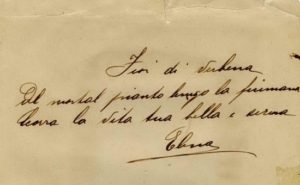 Fiori di verbena
Del mortal pianto lungo la fiumana
la vita tua bella e serena